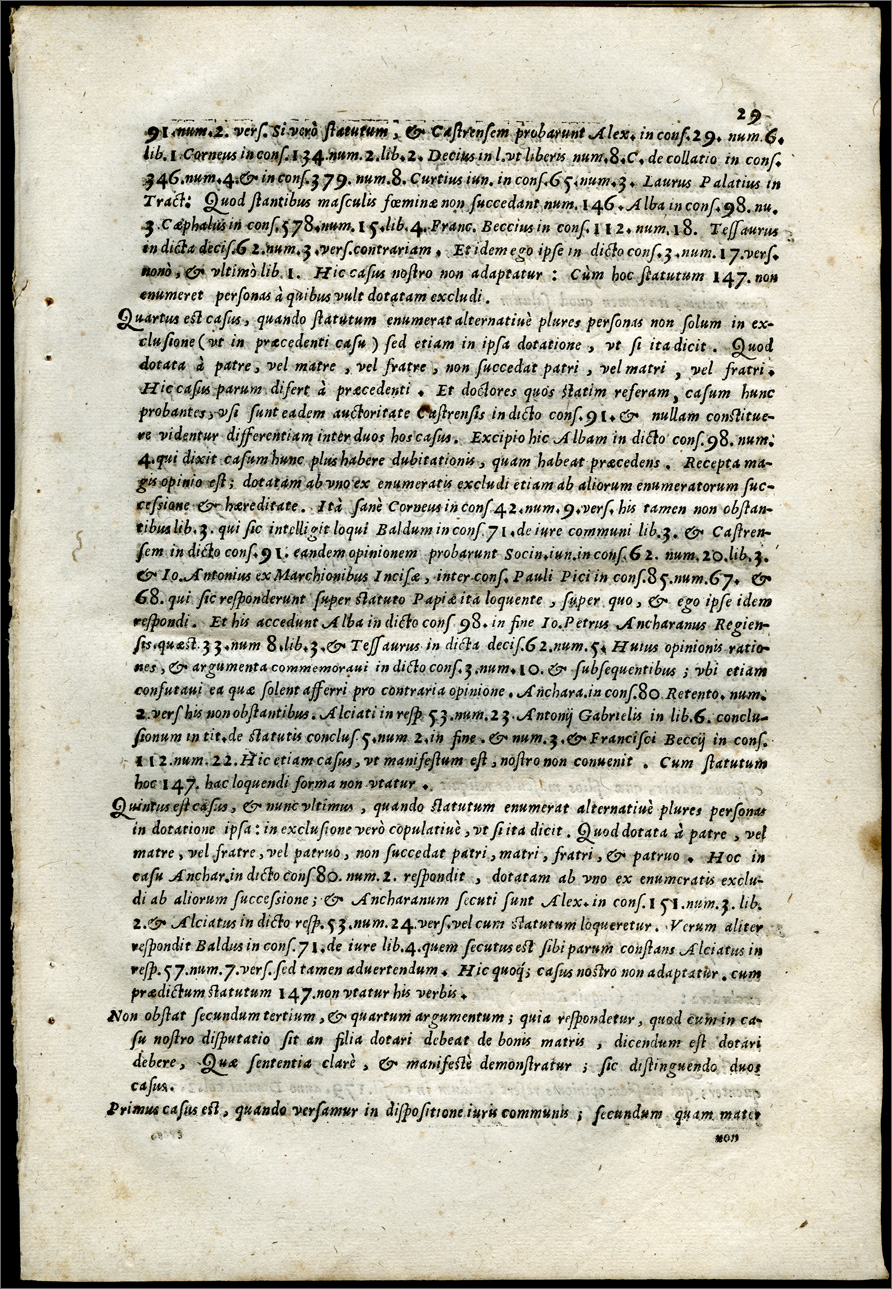 29
91.num.2. vers. Si verò statutum, & Castrensem probarunt Alex. in cons.29. num.6.
lib.1 Corneus in cons.134.num.2.lib.2. Decius in l.vt liberis num.8.C. de collatio in cons.
346.num.4.& in cons.379.num.8. Curtius iun. in cons.65.num.3. Laurus Palatius in
Tract: Quod stantibus masculis fœminæ non succedant num.146. Alba in cons.98.nu.
3.Cæphalus in cons.578.num.15.lib.4.Franc. Beccius in cons.112.num.18. Tessaurus
in dicta decis.62.num.3.vers.contrariam. Et idem ego ipse in dicto cons.3.num.17.vers.
nonò, & vltimò lib.1. Hic casus nostro non adaptatur : Cùm hoc statutum 147.non
enumeret personas à quibus vult dotatam excludi.
Quartus est casus, quando statutum enumerat alternatiuè plures personas non solum in ex-
clusione (vt in præcedenti casu) sed etiam in ipsa dotatione, vt si ita dicit. Quod
dotata à patre, vel matre, vel fratre, non succedat patri, vel matri, vel fratri.
Hic casus parum difert à præcedenti. Et doctores quos statim referam, casum hunc
probantes, vsi sunt eadem auctoritate Castrensis in dicto cons.91.& nullam constitue-
re videntur differentiam inter duos hos casus. Excipio hic Albam in dicto cons.98.num.
4.qui dixit casum hunc plus habere dubitationis, quam habeat præcedens. Recepta ma-
gis opinio est; dotatam ab vno ex enumeratis excludi etiam ab aliorum enumeratorum suc-
cessione & hæreditate. Ità sanè Corneus in cons.42.num.9.vers. his tamen non obstan-
tibus lib.3. qui sic intelligit loqui Baldum in cons.71.de iure communi lib.3. & Castren-
sem in dicto cons.91. eandem opinionem probarunt Socin.iun.in cons.62. num.20.lib.3.
& Io. Antonius ex Marchionibus Incisæ, inter cons. Pauli Pici in cons.85.num.67. &
68. qui sic responderunt super statuto Papiæ ità loquente, super quo, & ego ipse idem
respondi. Et his accedunt Alba in dicto cons 98. in fine Io.Petrus Ancharanus Regien-
sis.quæst.33.num 8.lib.3.& Tessaurus in dicta decis.62.num.5. Huius opinionis ratio-
nes, & argumenta commemoraui in dicto cons.3.num.10.& subsequentibus; vbi etiam
confutaui ea quæ solent afferri pro contraria opinione. Anchara.in cons.80 Retento.num.
2.vers his non obstantibus. Alciati in resp 53.num.23 Antonij Gabrielis in lib.6. conclu-
sionum in tit.de statutis conclus.5.num 2.in fine.& num.3.& Francisci Beccij in cons.
112.num.22.Hic etiam casus, vt manifestum est, nostro non conuenit. Cum statutum
hoc 147. hac loquendi forma non vtatur.
Quintus est casus, & nunc vltimus, quando statutum enumerat alternatiuè plures personas
in dotatione ipsa: in exclusione verò copulatiuè, vt si ita dicit. Quod dotata à patre, vel
matre, vel fratre, vel patruo, non succedat patri, matri, fratri, & patruo. Hoc in
casu Anchar.in dicto cons 80. num.2. respondit, dotatam ab vno ex enumeratis exclu-
di ab aliorum successione; & Ancharanum secuti sunt Alex. in cons.151.num.3. lib.
2.& Alciatus in dicto resp.53.num.24.vers.vel cum statutum loqueretur. Verum aliter
respondit Baldus in cons.71.de iure lib.4.quem secutus est sibi parum constans Alciatus in
resp.57.num.7.vers.sed tamen aduertendum. Hic quoq; casus nostro non adaptatur. cum
prædictum statutum 147.non vtatur his verbis.
Non obstat secundum tertium, & quartum argumentum; quia respondetur, quod cum in ca-
su nostro disputatio sit an filia dotari debeat de bonis matris, dicendum est dotari
debere, Quæ sententia clarè, & manifestè demonstratur; sic distinguendo duos
casus.
Primus casus est, quando versamur in dispositione iuris communis; secundum quam mater
non